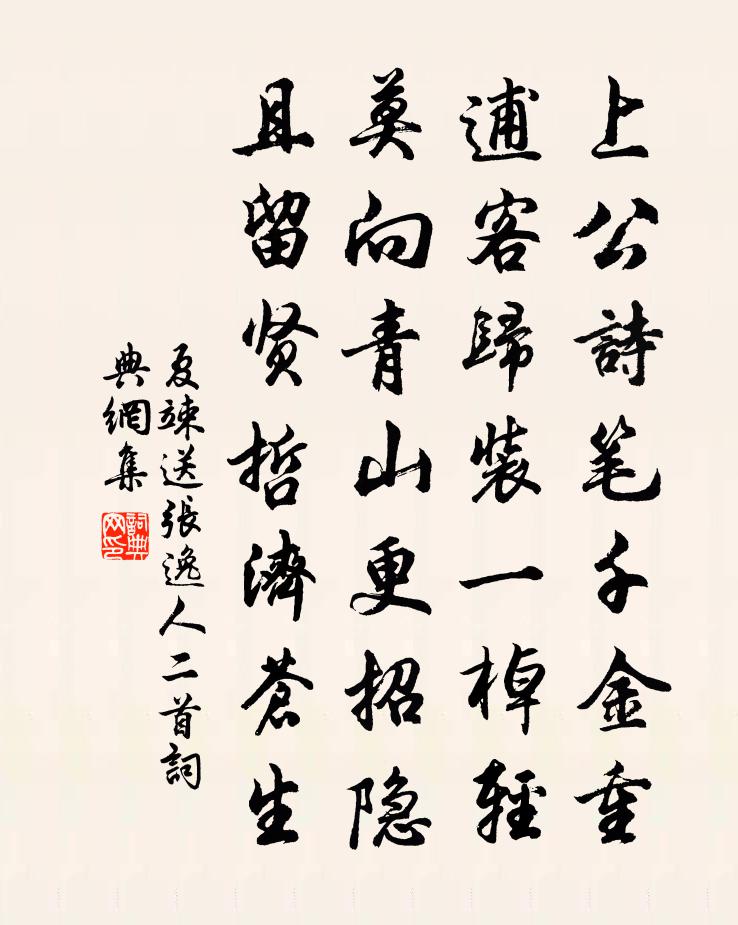 上公詩笔千金重
逋客歸裝一棹輕
莫向青山更招隐
且留贤哲濟蒼生
夏竦送張逸人二首詞
典網集
詞典
网印